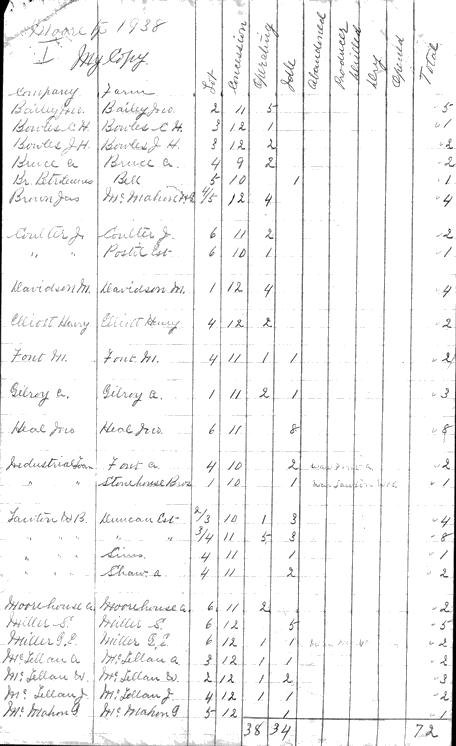 Moore Tp 1938
I My Copy
Company Farm Lot Concession Operating Idle Abandoned Producer Drilled Dry Opened Total
Bailey Jno. Bailey Jno. 2 11 5 5
Bowles C H. Bowles C H. 3 12 1 1
Bowles J H. Bowles J H. 3 12 2 2
Bruce A. Bruce A. 4 9 2 2
Bell 5 10 1 1
Brown Jas Mc Mahon 4/5 12 4 4
Coulter J. Coulter J. 6 11 2 2
" " Postil Est 6 10 1 1
Davidson M. Davidson M. 1 12 4 4
Elliott Henry Elliott Henry 4 12 2 2
Font M. Font M. 4 11 1 1 2
Gilroy A. Gilroy A. 1 11 2 1 3
Heal Jno Heal Jno. 6 11 8 8
Industrial Loan Font A. 4 10 2 2
" " Stonehouse Bros 1 10 1 1
Lawton W B. Duncan Est 2/3 10 1 3 4
" " " " 3/4 11 5 3 8
" " Sims. 4 11 1 1
" " Shaw A 4 11 2 2
Moorehouse A. Moorehouse A. 6 11 2 2
Miller S. Miller S. 6 12 5 5
Miller G.E. Miller G.E. 6 12 1 1 2
Mc Lellan A Mc Lellan A. 3 12 1 1 2
Mc Lellan W. Mc Lellan W. 2 12 1 2 3
Mc Lellan J. Mc Lellan J 4 12 1 1 2
Mc Mahon G Mc Mahon G 5 12 1 1
38 34 72